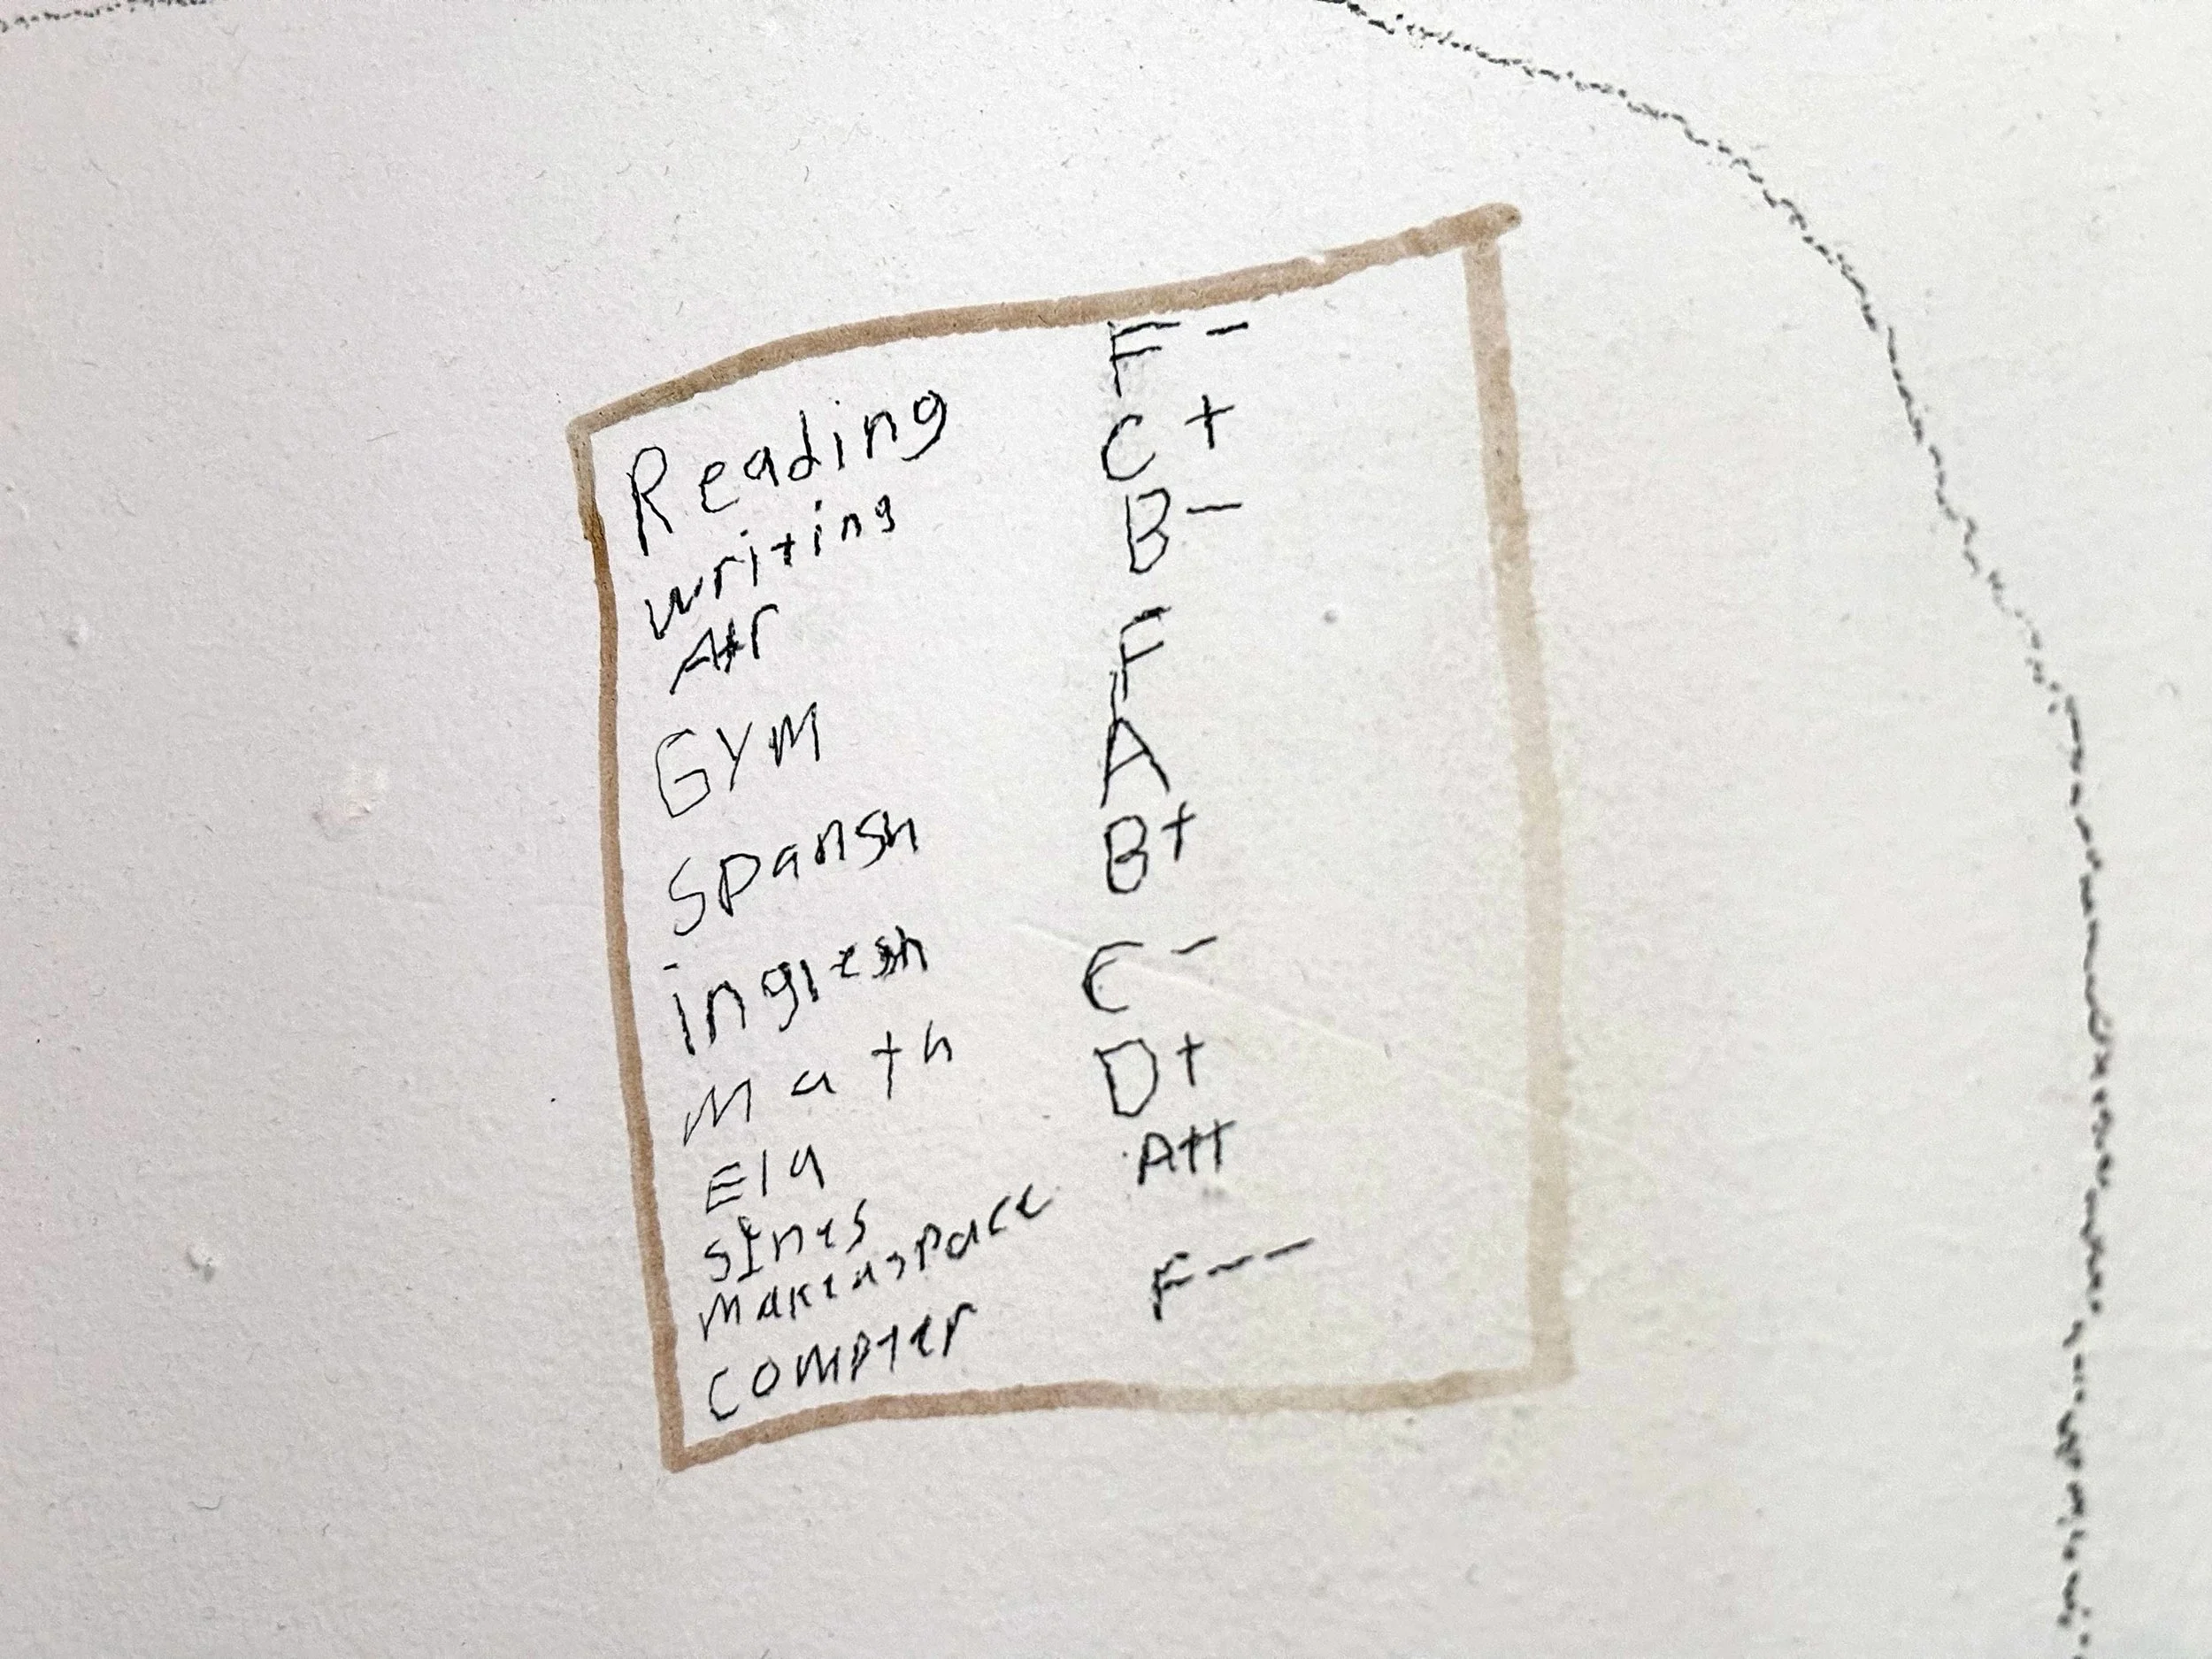 Reading F-
writing C+
Atr B-
GYM F
spansh A
inglesh B+
Math C-
Ela D+
sines A++
compter F--